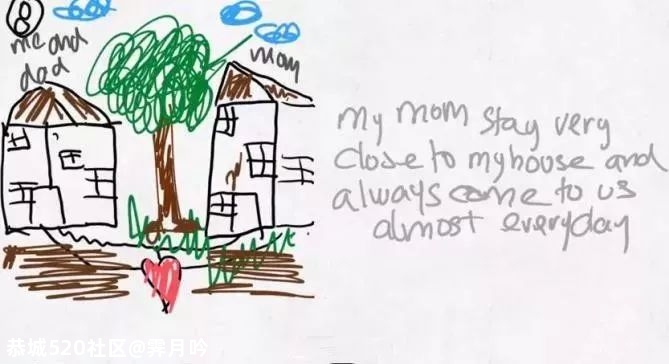 8
me and
dad
mom
my mom stay very
close to my house and
always come to us
almost everyday
恭城520社区@霁月吟